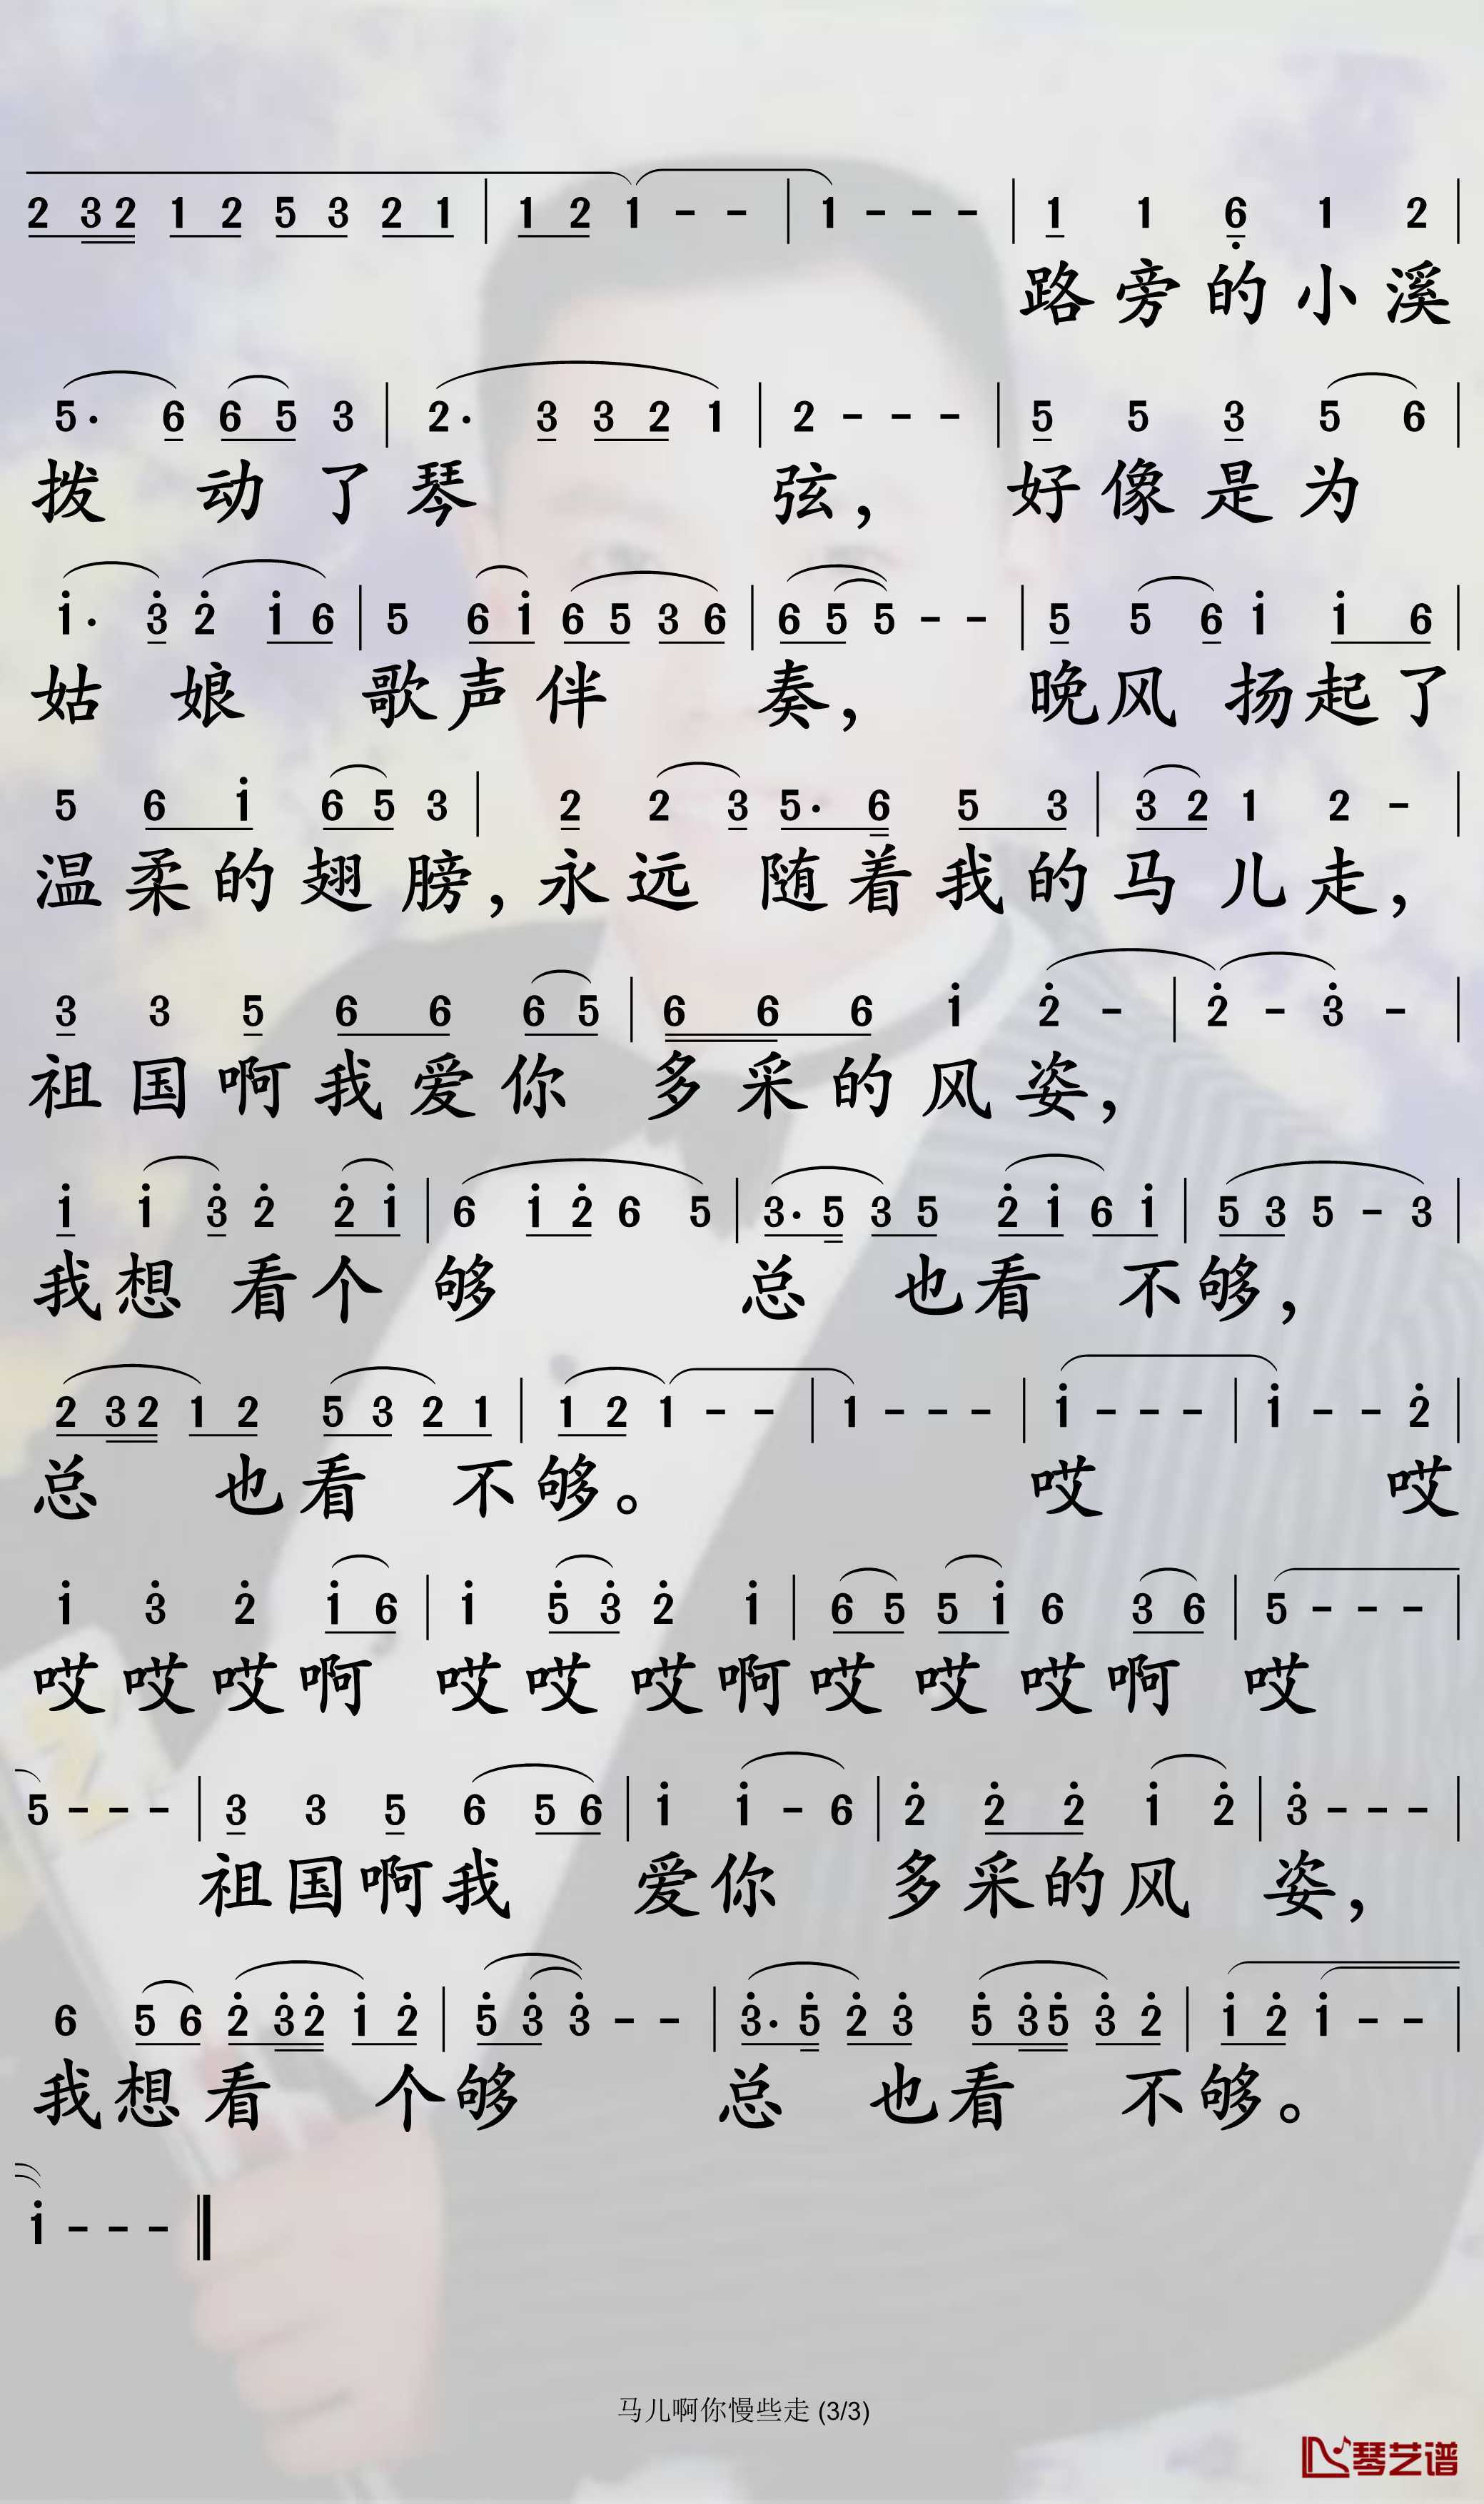 2 3 2 1 2 5 3 2 1 | 1 2 1 - - | 1 - - - | 1 1 6̣ 1 2 |
路旁的小溪
5· 6 6 5 3 | 2· 3 3 2 1 | 2 - - - | 5 5 3 5 6 |
拨动了琴弦，好像是为
i· 3̇ 2̇ i 6 | 5 6 i 6 5 3 6 | 6 5 5 - - | 5 5 6 i i 6 |
姑娘歌声伴奏，晚风扬起了
5 6 i 6 5 3 | 2 2 3 5· 6 5 3 | 3 2 1 2 - |
温柔的翅膀，永远随着我的马儿走，
3 3 5 6 6 6 5 | 6 6 6 i 2̇ - | 2̇ - 3̇ - |
祖国啊我爱你多采的风姿，
i i 3̇ 2̇ 2̇ i | 6 i 2̇ 6 5 | 3· 5 3 5 2̇ i 6 i | 5 3 5 - 3 |
我想看个够总也看不够，
2 3 2 1 2 5 3 2 1 | 1 2 1 - - | 1 - - - | i - - - | i - - 2̇ |
总也看不够。哎哎
i 3̇ 2̇ i 6 | i 5̇ 3̇ 2̇ i | 6 5 5 i 6 3 6 | 5 - - - |
哎哎哎啊哎哎哎啊哎哎哎啊哎
5 - - - | 3 3 5 6 5 6 | i i - 6 | 2̇ 2̇ 2̇ i 2̇ | 3̇ - - - |
祖国啊我爱你多采的风姿，
6 5 6 2̇ 3̇ 2̇ i 2̇ | 5̇ 3̇ 3̇ - - | 3̇· 5̇ 2̇ 3̇ 5̇ 3̇ 5̇ 3̇ 2̇ | i 2̇ i - - |
我想看个够总也看不够。
i - - - ‖
马儿啊你慢些走 (3/3)
琴艺谱